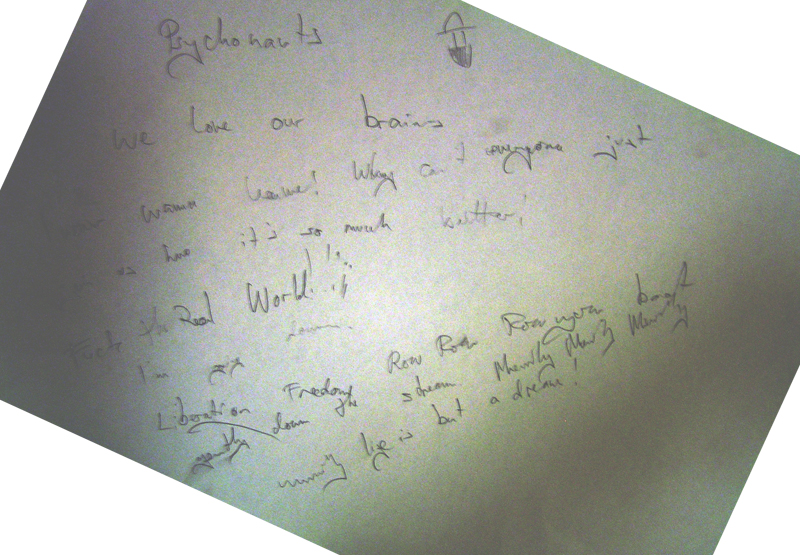 Psychonauts
We love our brains
wanna leave! Why can't everyone just
us here it's so much better!
Fuck the Real World!!
I'm
Liberation Freedom Row Row Row your boat
gently down the stream Merrily Merrily Merrily
life is but a dream!